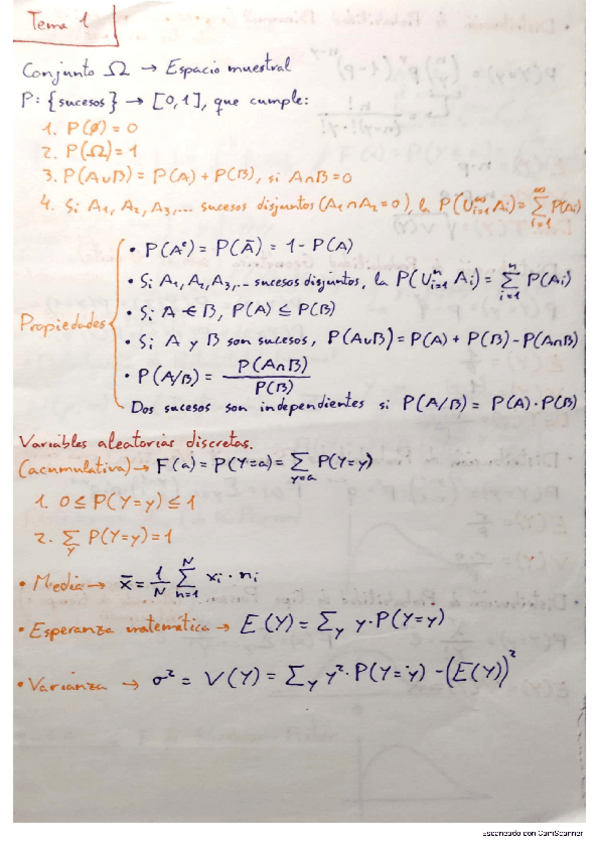 Tema 1
Conjunto Ω → Espacio muestral
P: {sucesos} → [0,1], que cumple:
1. P(Ø) = 0
2. P(Ω) = 1
3. P(A∪B) = P(A) + P(B), si A∩B=0
4. Si A₁, A₂, A₃,... sucesos disjuntos (A₁∩A₂=0), la P(∪_{i=1}^{∞} Ai) = ∑_{i=1}^{∞} P(Ai)
Propiedades
• P(Aᶜ) = P(Ā) = 1 - P(A)
• Si A₁, A₂, A₃,... sucesos disjuntos, la P(∪_{i=1}^{n} Ai) = ∑_{i=1}^{n} P(Ai)
• Si A ∈ B, P(A) ≤ P(B)
• Si A y B son sucesos, P(A∪B) = P(A) + P(B) - P(A∩B)
• P(A/B) = P(A∩B) / P(B)
Dos sucesos son independientes si P(A/B) = P(A)·P(B)
Variables aleatorias discretas.
(acumulativa) → F(a) = P(Y=a) = ∑_{y=a} P(Y=y)
1. 0 ≤ P(Y=y) ≤ 1
2. ∑_y P(Y=y) = 1
• Media → x̄ = 1/N ∑_{n=1}^{N} xi · ni
• Esperanza matemática → E(Y) = ∑_y y·P(Y=y)
• Varianza → σ² = V(Y) = ∑_y y²·P(Y=y) - (E(Y))²
Escaneado con CamScanner